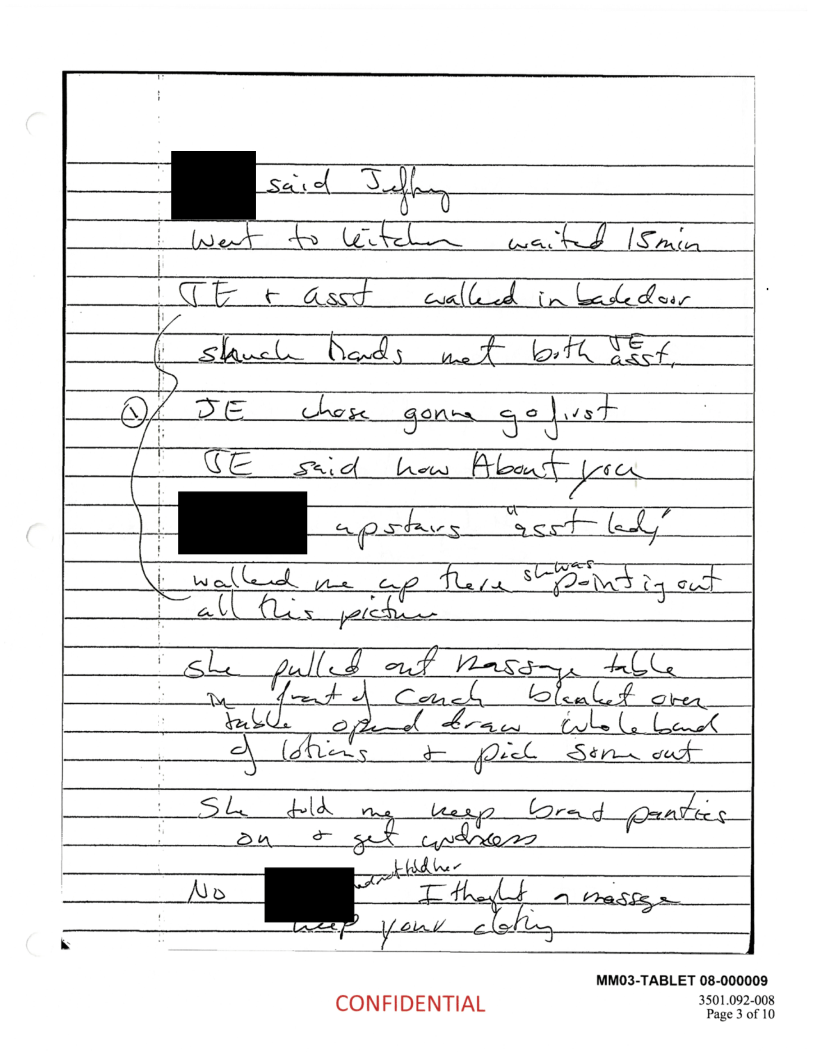 said Jeffry
went to kitchen waited 15 min
JE + asst walked in backdoor
JE
shuck hands met both asst.
① JE chose gonna go first
JE said how About you
upstairs "asst lady"
walked me up there she was pointig out
all this picture
she pulled out massage table
in front of couch blanket over
table opend draw whole bunch
of lotions + pick some out
She told me keep bra + panties
on + get undress
had not told her
No I thoght a massge
keep your clothing
MM03-TABLET 08-000009
CONFIDENTIAL
3501.092-008
Page 3 of 10